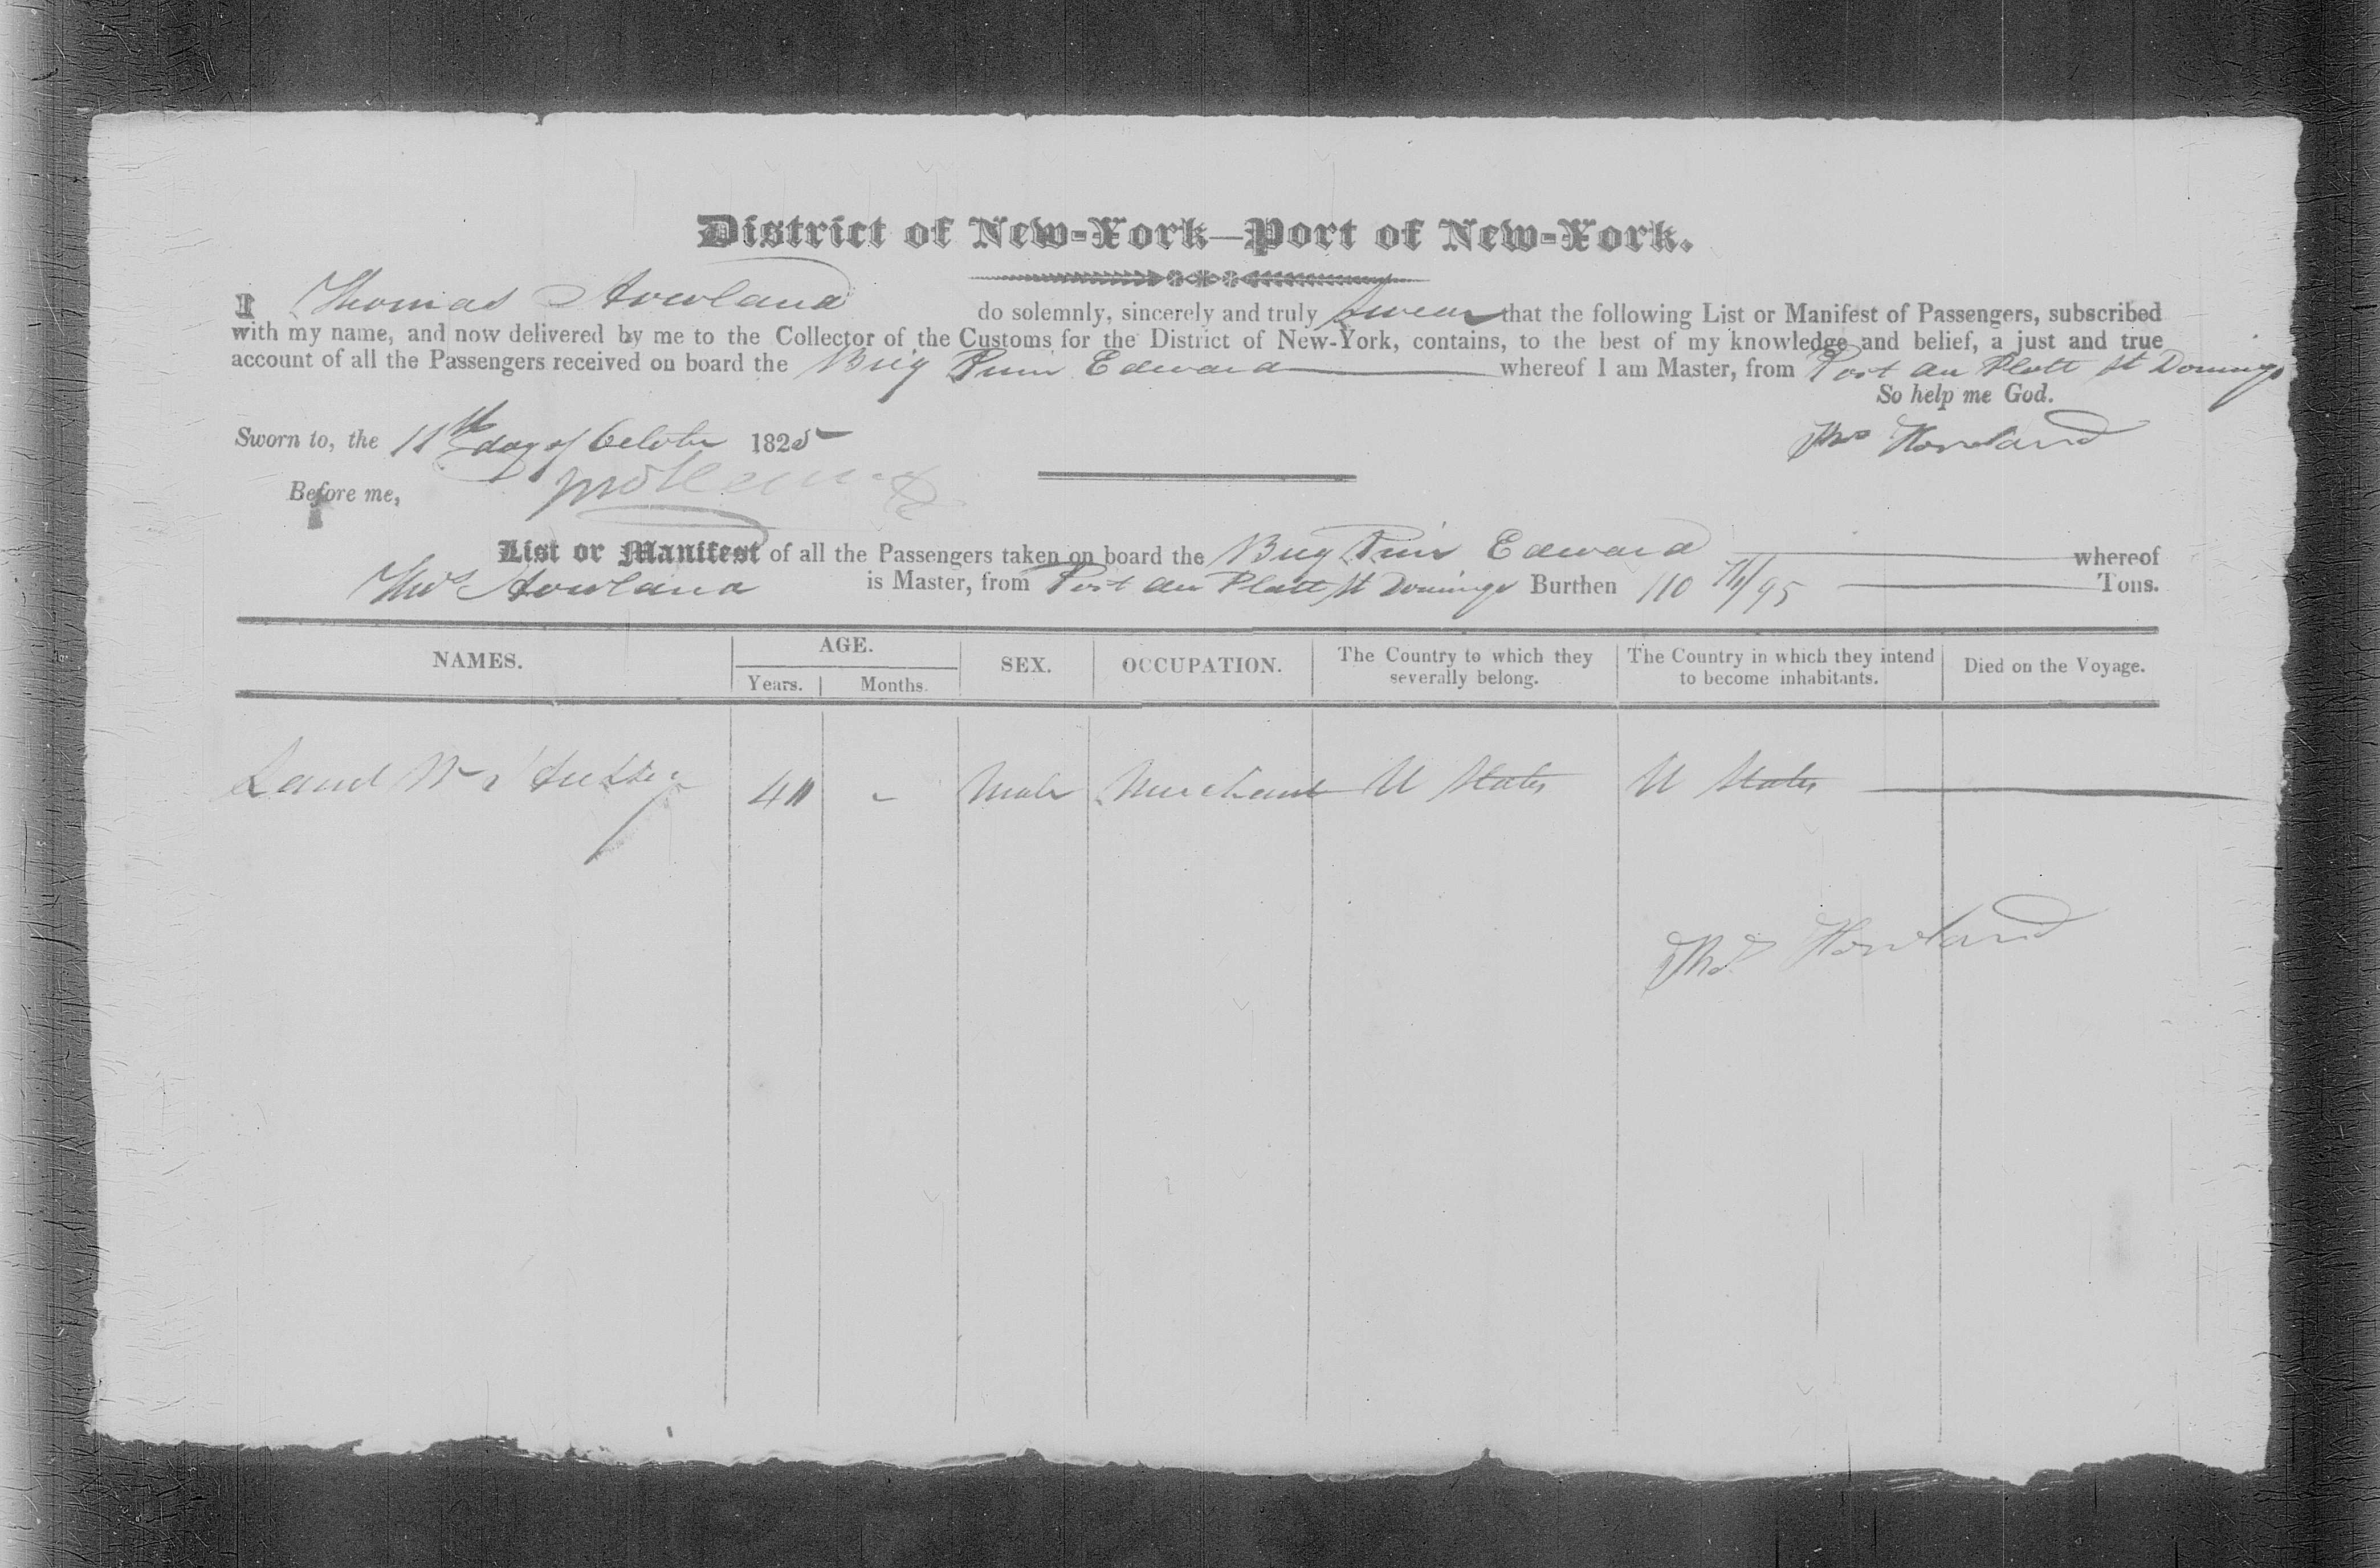 District of New-York—Port of New-York.
I Thomas Howland do solemnly, sincerely and truly swear that the following List or Manifest of Passengers, subscribed
with my name, and now delivered by me to the Collector of the Customs for the District of New-York, contains, to the best of my knowledge and belief, a just and true
account of all the Passengers received on board the Brig Edward whereof I am Master, from Port au Platt St Domingo
So help me God.
Sworn to, the 11th day of October 1825
Thos Howland
Before me,
List or Manifest of all the Passengers taken on board the Brig Edward whereof
Thos Howland is Master, from Port au Platt St Domingo Burthen 110 /95 Tons.
NAMES. AGE. Years. Months. SEX. OCCUPATION. The Country to which they severally belong. The Country in which they intend to become inhabitants. Died on the Voyage.
Male Merchant U States U States
Thos Howland